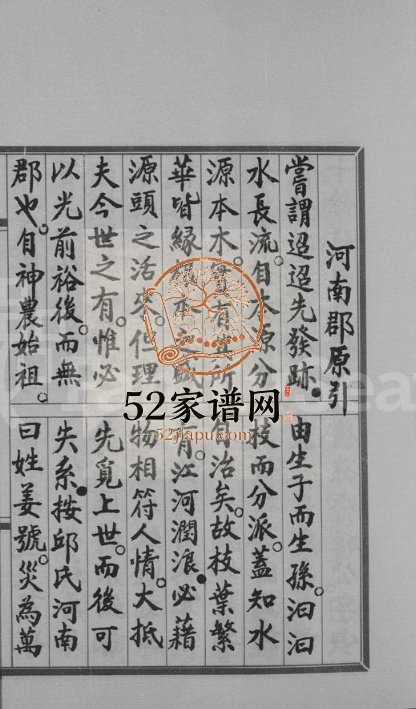 河南郡原引
嘗謂迢迢先發跡由生子而生孫汩汩
水長流自木原分枝而分派蓋知水
源本木有所自治矣故枝葉繁
華皆緣本有江河潤浪必藉
源頭之活理物相符人情大抵
夫今世之有惟必先覓上世而後可
以光前裕後而無失系按邱氏河南
郡也自神農始祖曰姓姜號災為萬
52家谱网
52jiapu.com